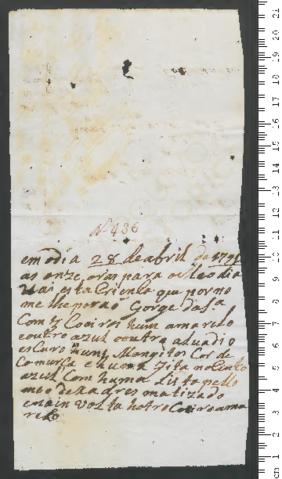 Nº 436
em o dia 28 de abril de 179
as onze oras para o meo dia
Vai esta Criensa que por no
me lhe porão Gorge da S.ª
Com 3 Coeiros hum amarelo
e outro azul e outra aduadio
escuro huns Mangitos Cor de
Camursa e huma fita no Cinto
azul Com huma lista pello
meio de xadres matizado
e na in volta hotro Coeiro ama
relo